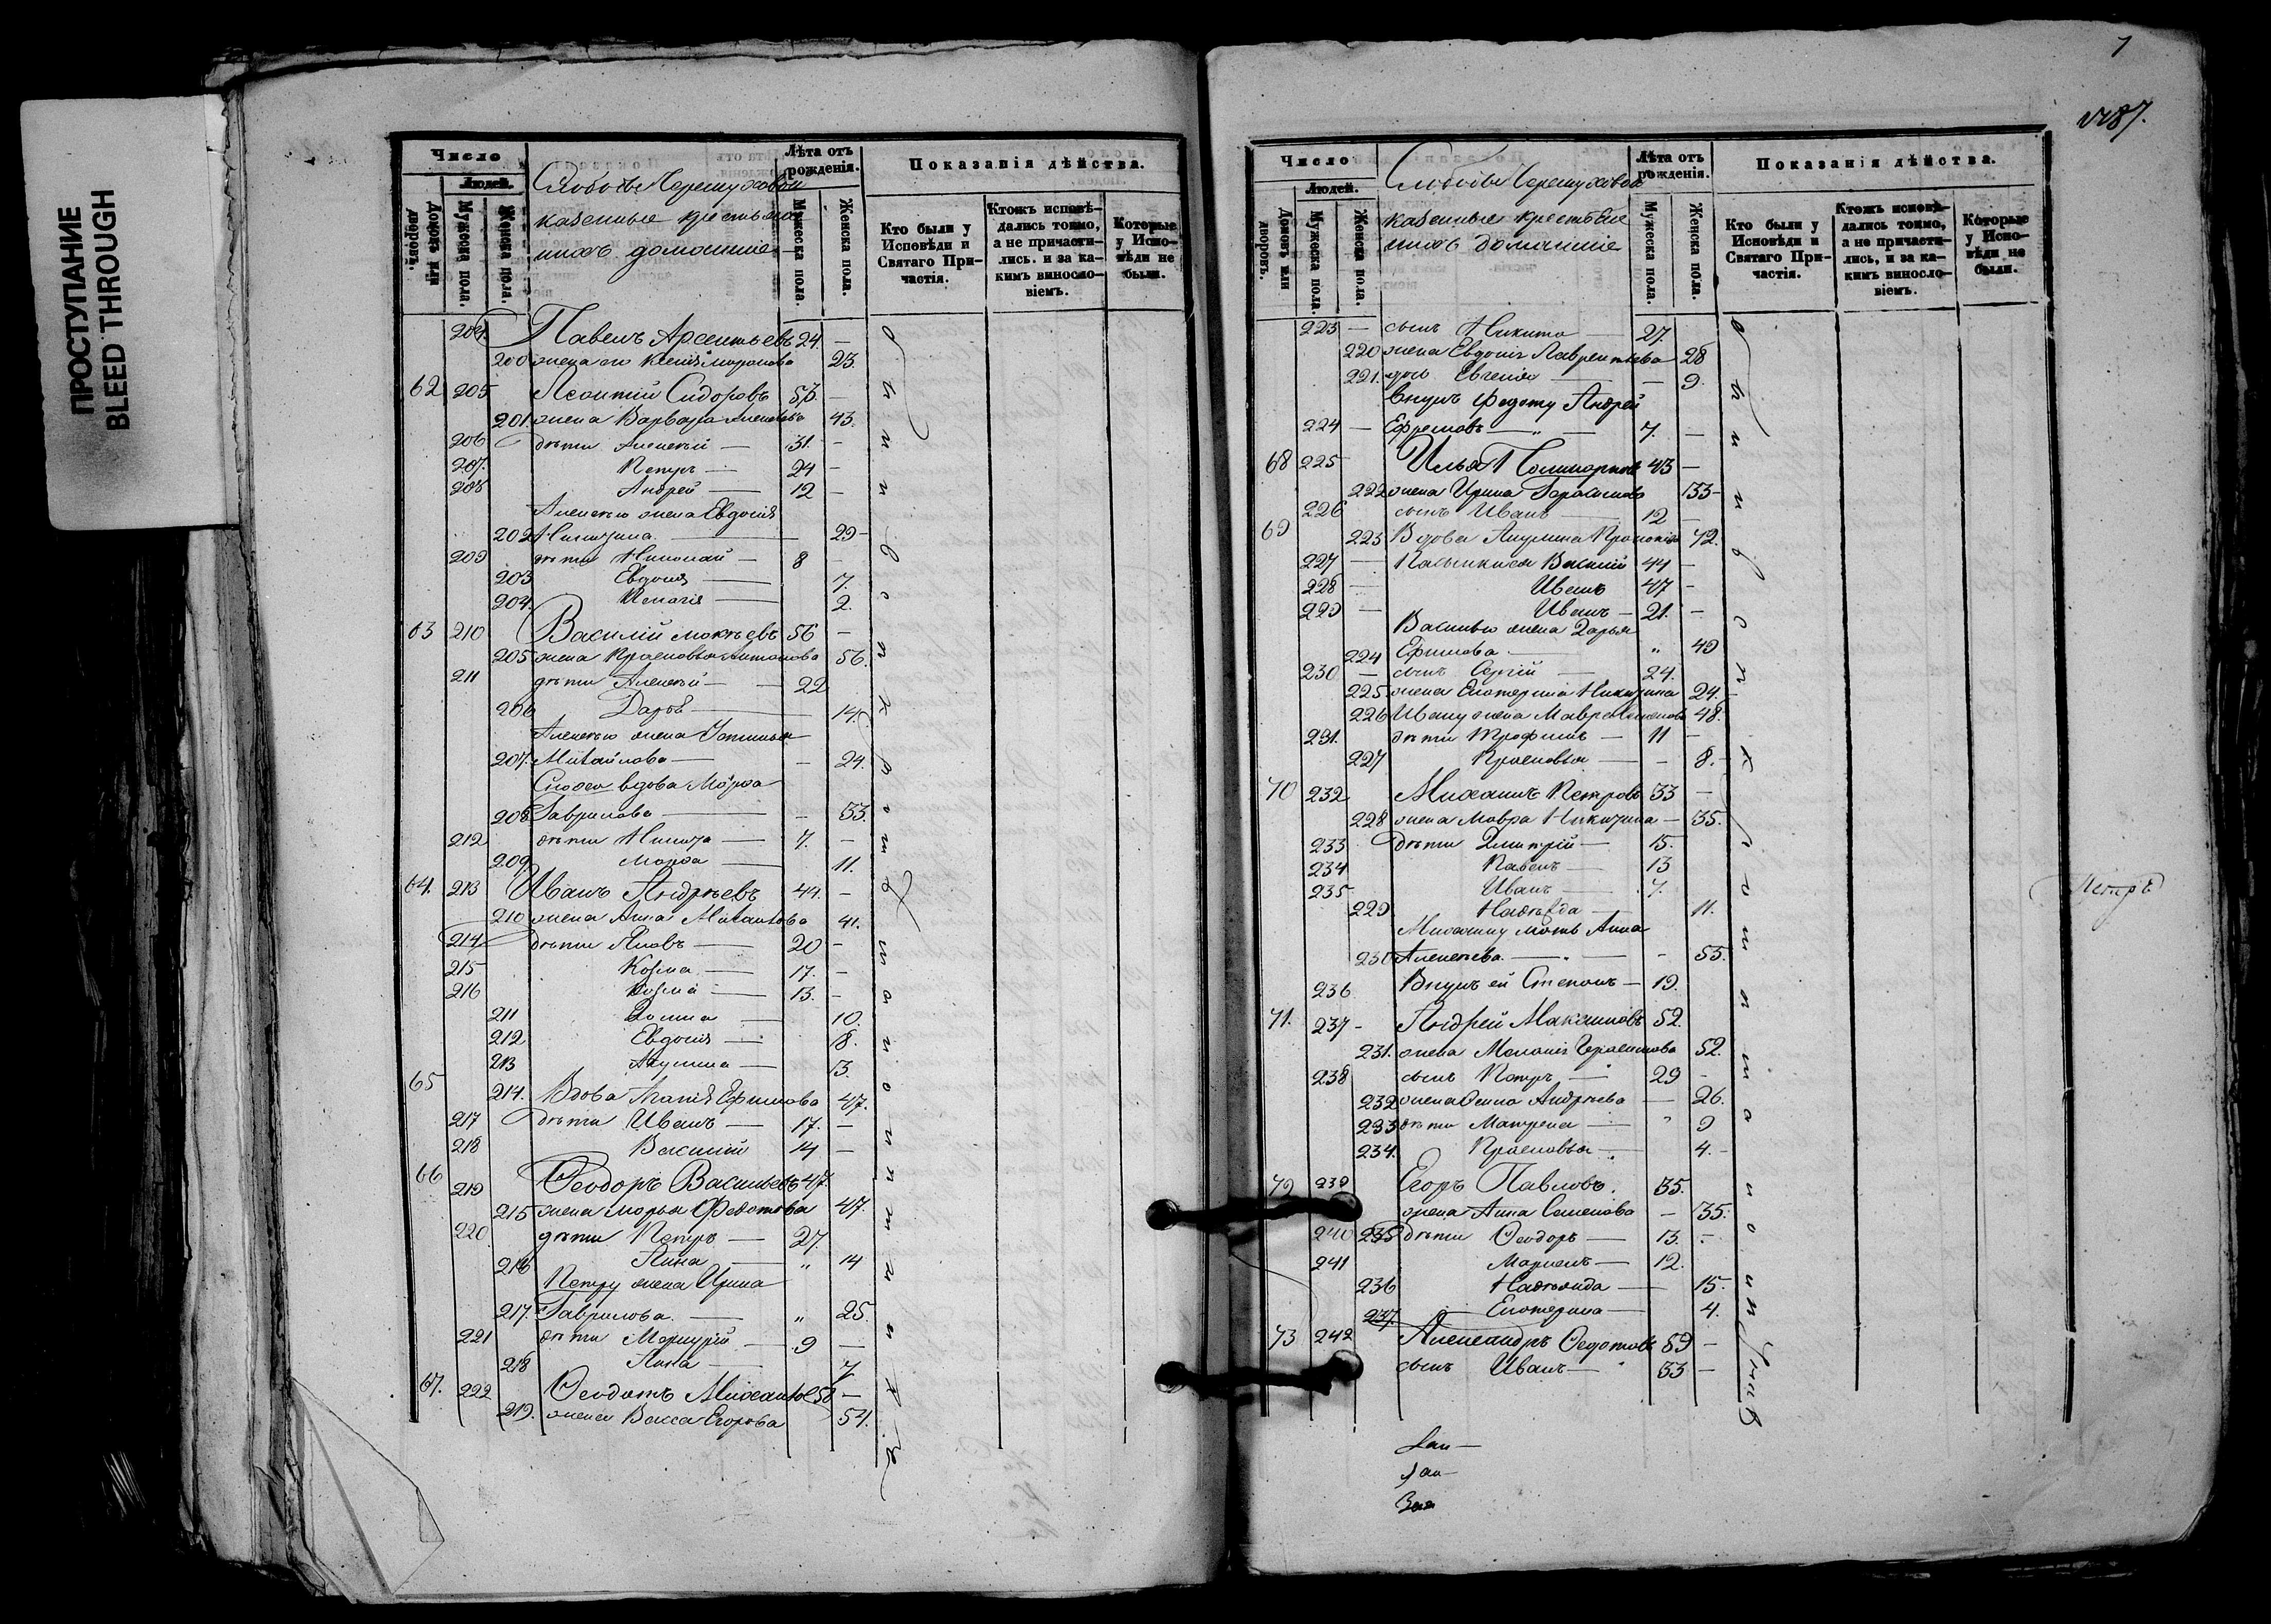 ПРОСТУПАНИЕ
BLEED THROUGH
Число
Людей.
Домовъ или дворовъ.
Мужеска пола.
Женска пола.
Слободы Черемуховой
казенные крестьяне
и ихъ домашніе
Лѣта отъ рожденія.
Мужеска пола.
Женска пола.
Показанія дѣйства.
Кто были у Исповѣди и Святаго Причастія.
Ктожъ исповѣдались токмо, а не причастились, и за какимъ винословіемъ.
Которые у Исповѣди не были.
204 Павелъ Арсентьевъ 24. —
200 жена его Ксенія 23.
62 205 Леонтій Сидоровъ 53. —
201 жена Варвара Алексѣева 43.
206 дѣти Алексѣй — 31 —
207. Петръ — 24 —
208 Андрей — 12 —
Алексѣю жена Евдокія
202 Никитина — 29 —
209 дѣти Николай — 8 —
203 Евдокія — 7.
204. 2.
63 210 Василій Мокѣевъ 56 —
205 жена Прасковья Антонова 56.
211 дѣти Алексѣй — 22
206 Дарья — 14.
Алексѣю жена Устинья
207. Михайлова — — 24.
вдова Марѳа
208 Гаврилова — — 33.
212 дѣти Никита — 7. —
209. Марѳа — 11.
64. 213 Иванъ Андрѣевъ 44. —
210 жена Анна Михайлова 41.
214 дѣти Яковъ — 20 —
215 Козма — 17. —
216 Козма — 13. —
211 Домна — 10.
212 Евдокія — 8.
213 Акулина — 3.
65 214. Вдова Агапія Ефимова 47.
217 дѣти Иванъ — 17. —
218 Василій 14 —
66 219 Ѳеодоръ Васильевъ 47.
215 жена Марья Федотова 47.
220 дѣти Петръ — 27.
216 Анна — „ 14
Петру жена Ирина
217. Гаврилова. — „ 25.
221 дѣти Меркурій — 9 —
218 Анна — 7
67. 222 Ѳеодотъ Михайловъ 58 —
219. жена Васса Егорова 54.
7
487.
Число
Людей.
Домовъ или дворовъ.
Мужеска пола.
Женска пола.
Слободы Черемуховой
казенные крестьяне
и ихъ домашніе
Лѣта отъ рожденія.
Мужеска пола.
Женска пола.
Показанія дѣйства.
Кто были у Исповѣди и Святаго Причастія.
Ктожъ исповѣдались токмо, а не причастились, и за какимъ винословіемъ.
Которые у Исповѣди не были.
223 — сынъ Никита — 27.
220 жена Евдокія Лаврентьева 28
221. дочь Евгенія — — 9.
Внукъ Федоту Андрей
224 — Ефремовъ — „ — 7. —
68 225 Илья 43 —
222 жена Ирина Герасимова 33 —
226 сынъ Иванъ — 12 —
69 223 Вдова Акулина Прокопіева 72.
227 — Пасынки ея Василій 44 —
228 — Иванъ 47 —
229 — Иванъ — 21. —
Василью жена Дарья
224 Ефимова — „ 49
230 — сынъ Сергій — 24.
225. жена Екатерина Никитина 24. —
226 Ивану жена Мавра Семенова 48.
231. дѣти Трофимъ — 11 —
227 Прасковья — — 8. —
70 232 Михаилъ Петровъ 33 —
228 жена Мавра Никитина — 35.
233 дѣти Дмитрій — 15.
234 Павелъ — 13
235 Иванъ — 7.
229. Надежда — 11.
Михаилу мать Анна
230 Алексѣева — — 55.
236 Внукъ ей Степанъ — 19.
71. 237 — Андрей Максимовъ 52.
231. жена Меланія Герасимова 52.
238 сынъ Петръ — 29 —
232 жена Анна Андрѣева — 26.
233 дѣти Матрена — „ 9
234. Прасковья — 4. —
72 239 Егоръ Павловъ. 35.
жена Анна Семенова — 35.
240 235 дѣти Ѳеодоръ — 13. —
241 12.
236 Надежда — 15.
237. Екатерина — 4.
73 242 Александръ Ѳедотовъ 59 —
сынъ Иванъ — 33 —
Петръ